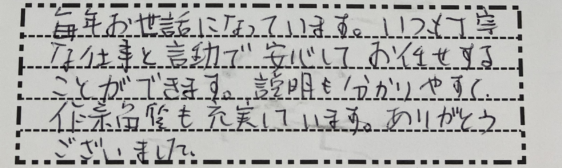 毎年お世話になっています。いつも丁寧
な仕事と言動で安心してお任せする
ことができます。説明も分かりやすく、
作業品質も充実しています。ありがとう
ございました。